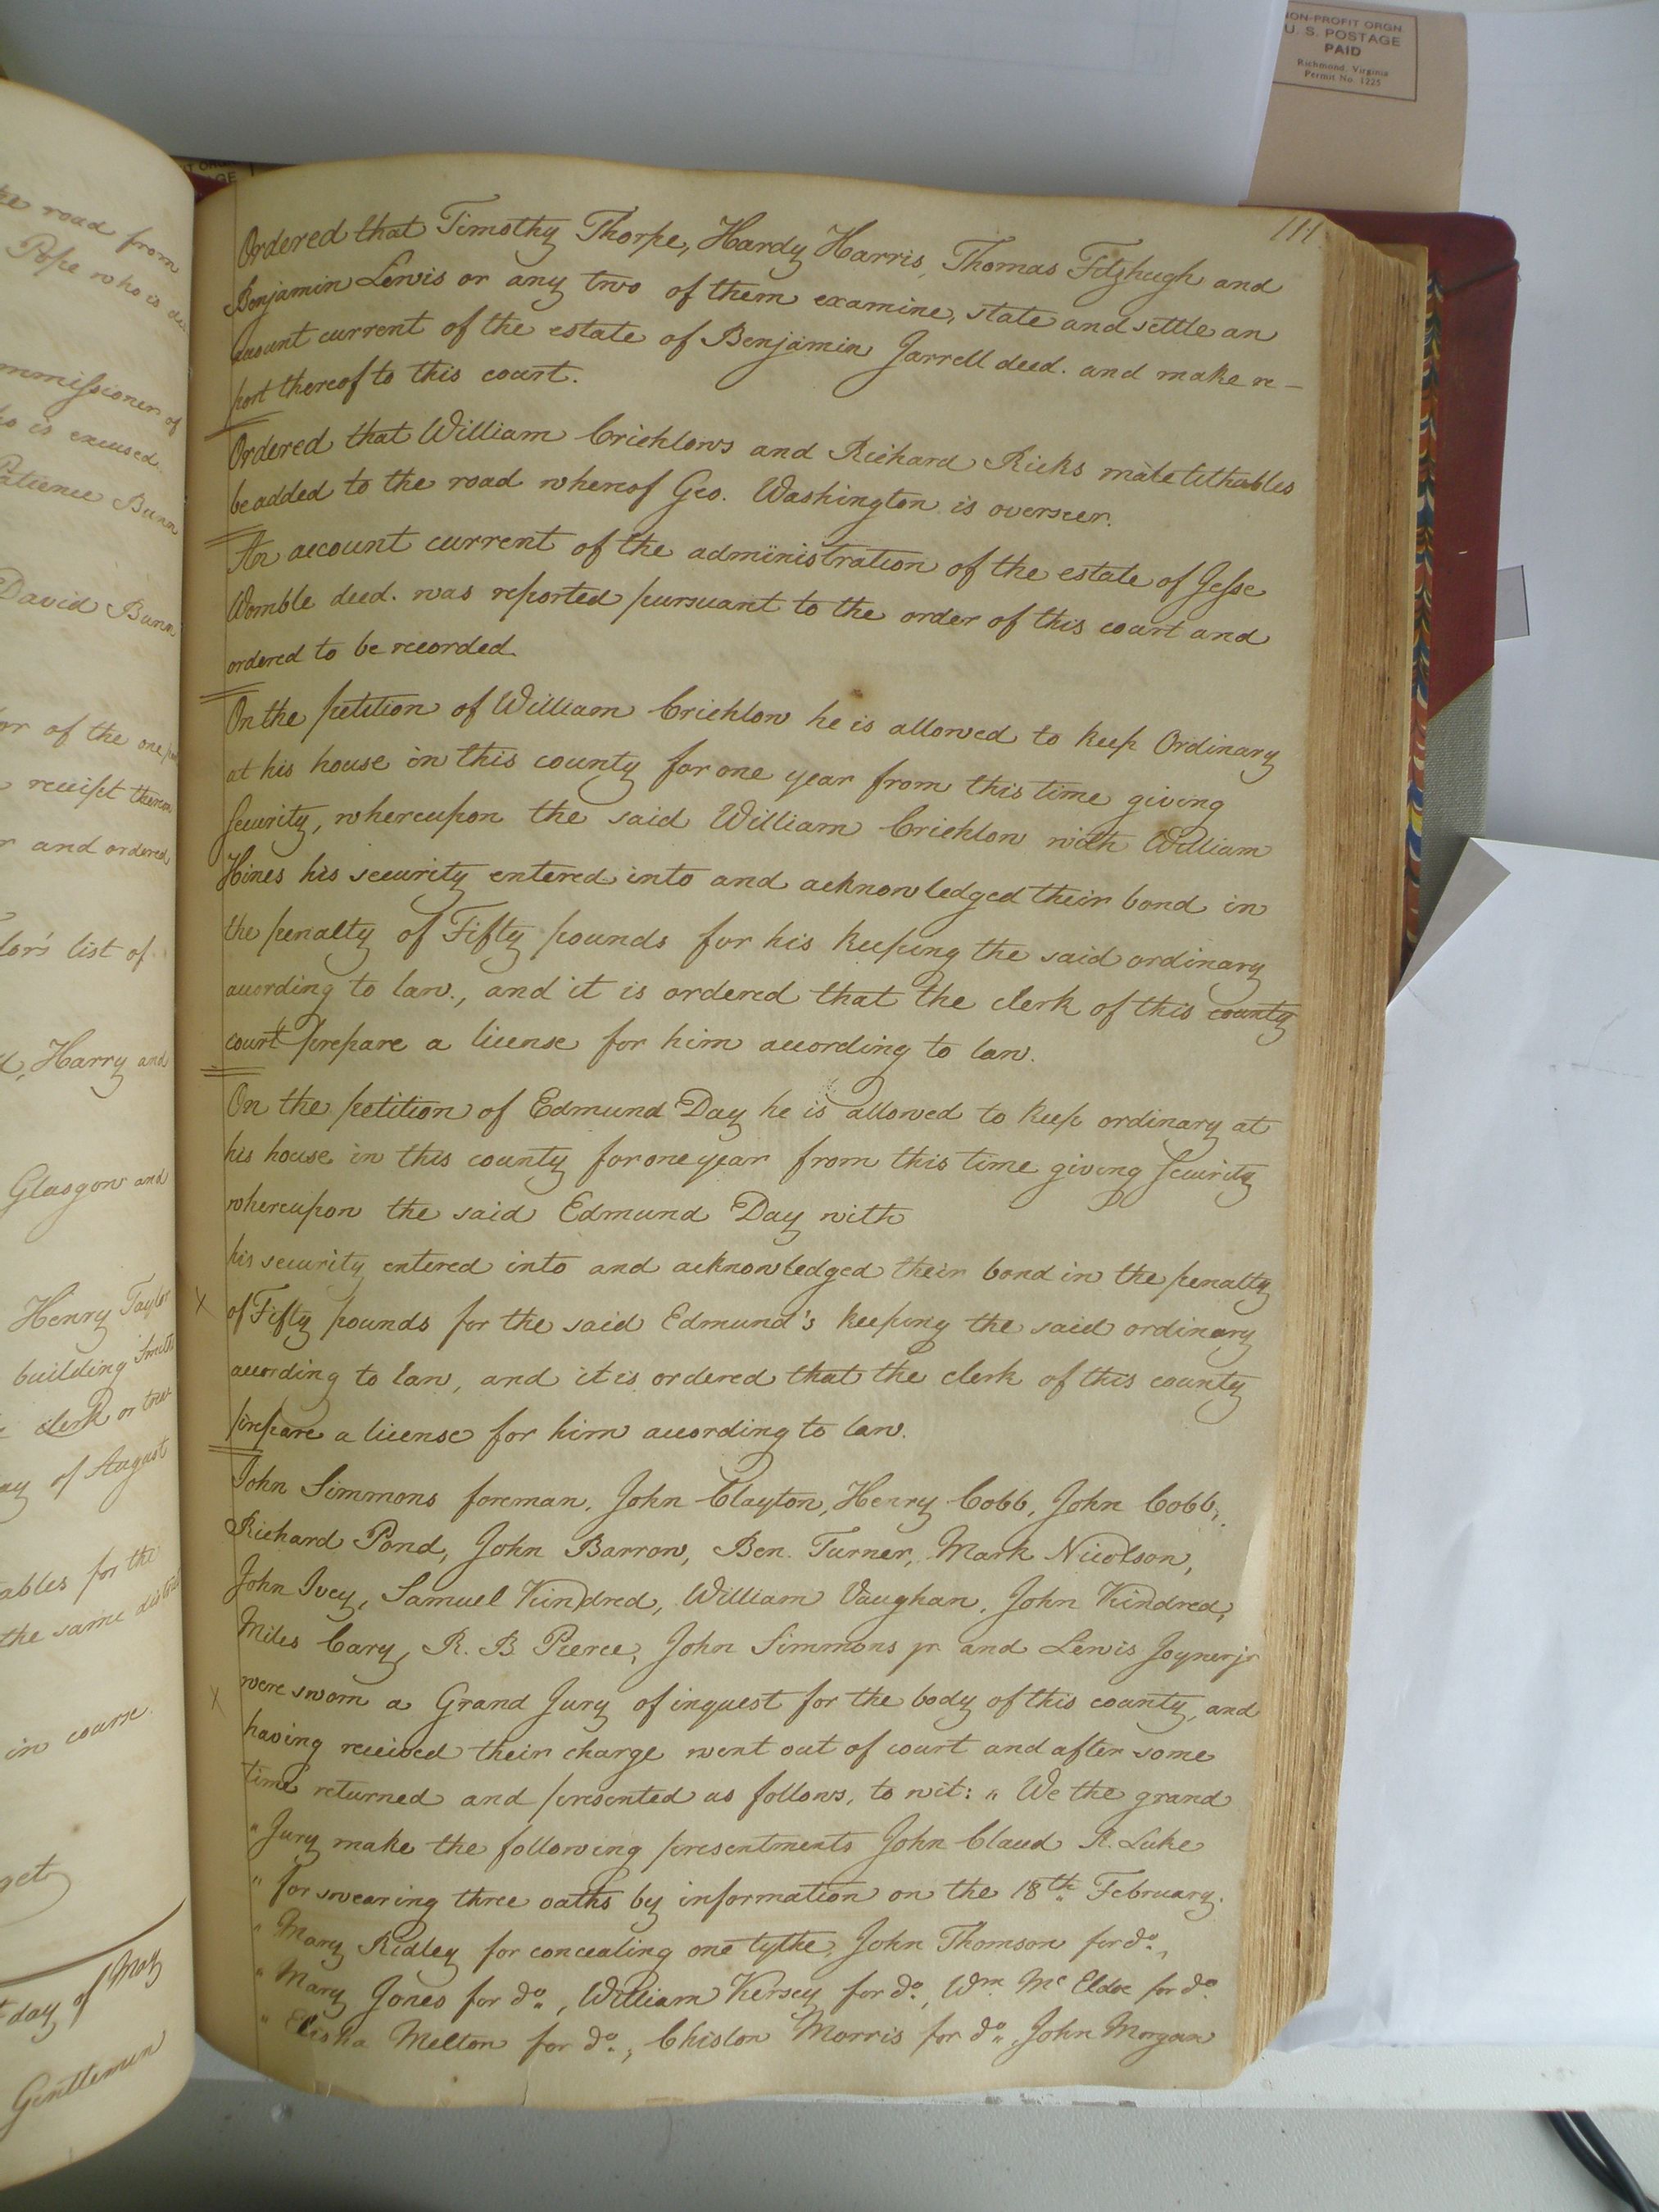 NON-PROFIT ORGN
U. S. POSTAGE
PAID
Richmond, Virginia
Permit No. 1225
ke road from
Pope who is
mmissioner of
ho is excused.
Patience Bunn
David Bunn
or of the one
receipt thereon
r and ordered
lor's list of
Harry and
Glasgow and
Henry Taylor
building Smith
clerk or
ay of August
ables for the
the same
in course.
get
day of May
Gentlemen
111
Ordered that Timothy Thorpe, Hardy Harris, Thomas Fitzhugh and
Benjamin Lewis or any two of them examine, state and settle an
account current of the estate of Benjamin Jarrell decd. and make re-
port thereof to this court.
Ordered that William Crichlows and Richard Ricks male tithables
be added to the road whereof Geo. Washington is overseer.
An account current of the administration of the estate of Jesse
Womble decd. was reported pursuant to the order of this court and
ordered to be recorded.
On the petition of William Crichlow he is allowed to keep Ordinary
at his house in this county for one year from this time giving
security, whereupon the said William Crichlow with William
Hines his security entered into and acknowledged their bond in
the penalty of Fifty pounds for his keeping the said ordinary
according to law., and it is ordered that the clerk of this county
court prepare a license for him according to law.
On the petition of Edmund Day he is allowed to keep ordinary at
his house in this county for one year from this time giving security
whereupon the said Edmund Day with
his security entered into and acknowledged their bond in the penalty
x of Fifty pounds for the said Edmund's keeping the said ordinary
according to law, and it is ordered that the clerk of this county
prepare a license for him according to law.
John Simmons foreman, John Clayton, Henry Cobb, John Cobb,
Richard Pond, John Barrow, Ben. Turner, Mark Nicolson,
John Ivey, Samuel Kindred, William Vaughan, John Kindred,
Miles Cary, R. B. Pierce, John Simmons jr and Lewis Joyner jr
x were sworn a Grand Jury of inquest for the body of this county, and
having received their charge went out of court and after some
time returned and presented as follows, to wit: " We the grand
" Jury make the following presentments John Claud St. Luke
" for swearing three oaths by information on the 18th February.
" Mary Ridley for concealing one tythe, John Thomson for do.,
" Mary Jones for do., William Kersey for do., Wm. Mc Eldoe for do.
" Elisha Melton for do., Chislon Morris for do., John Morgan